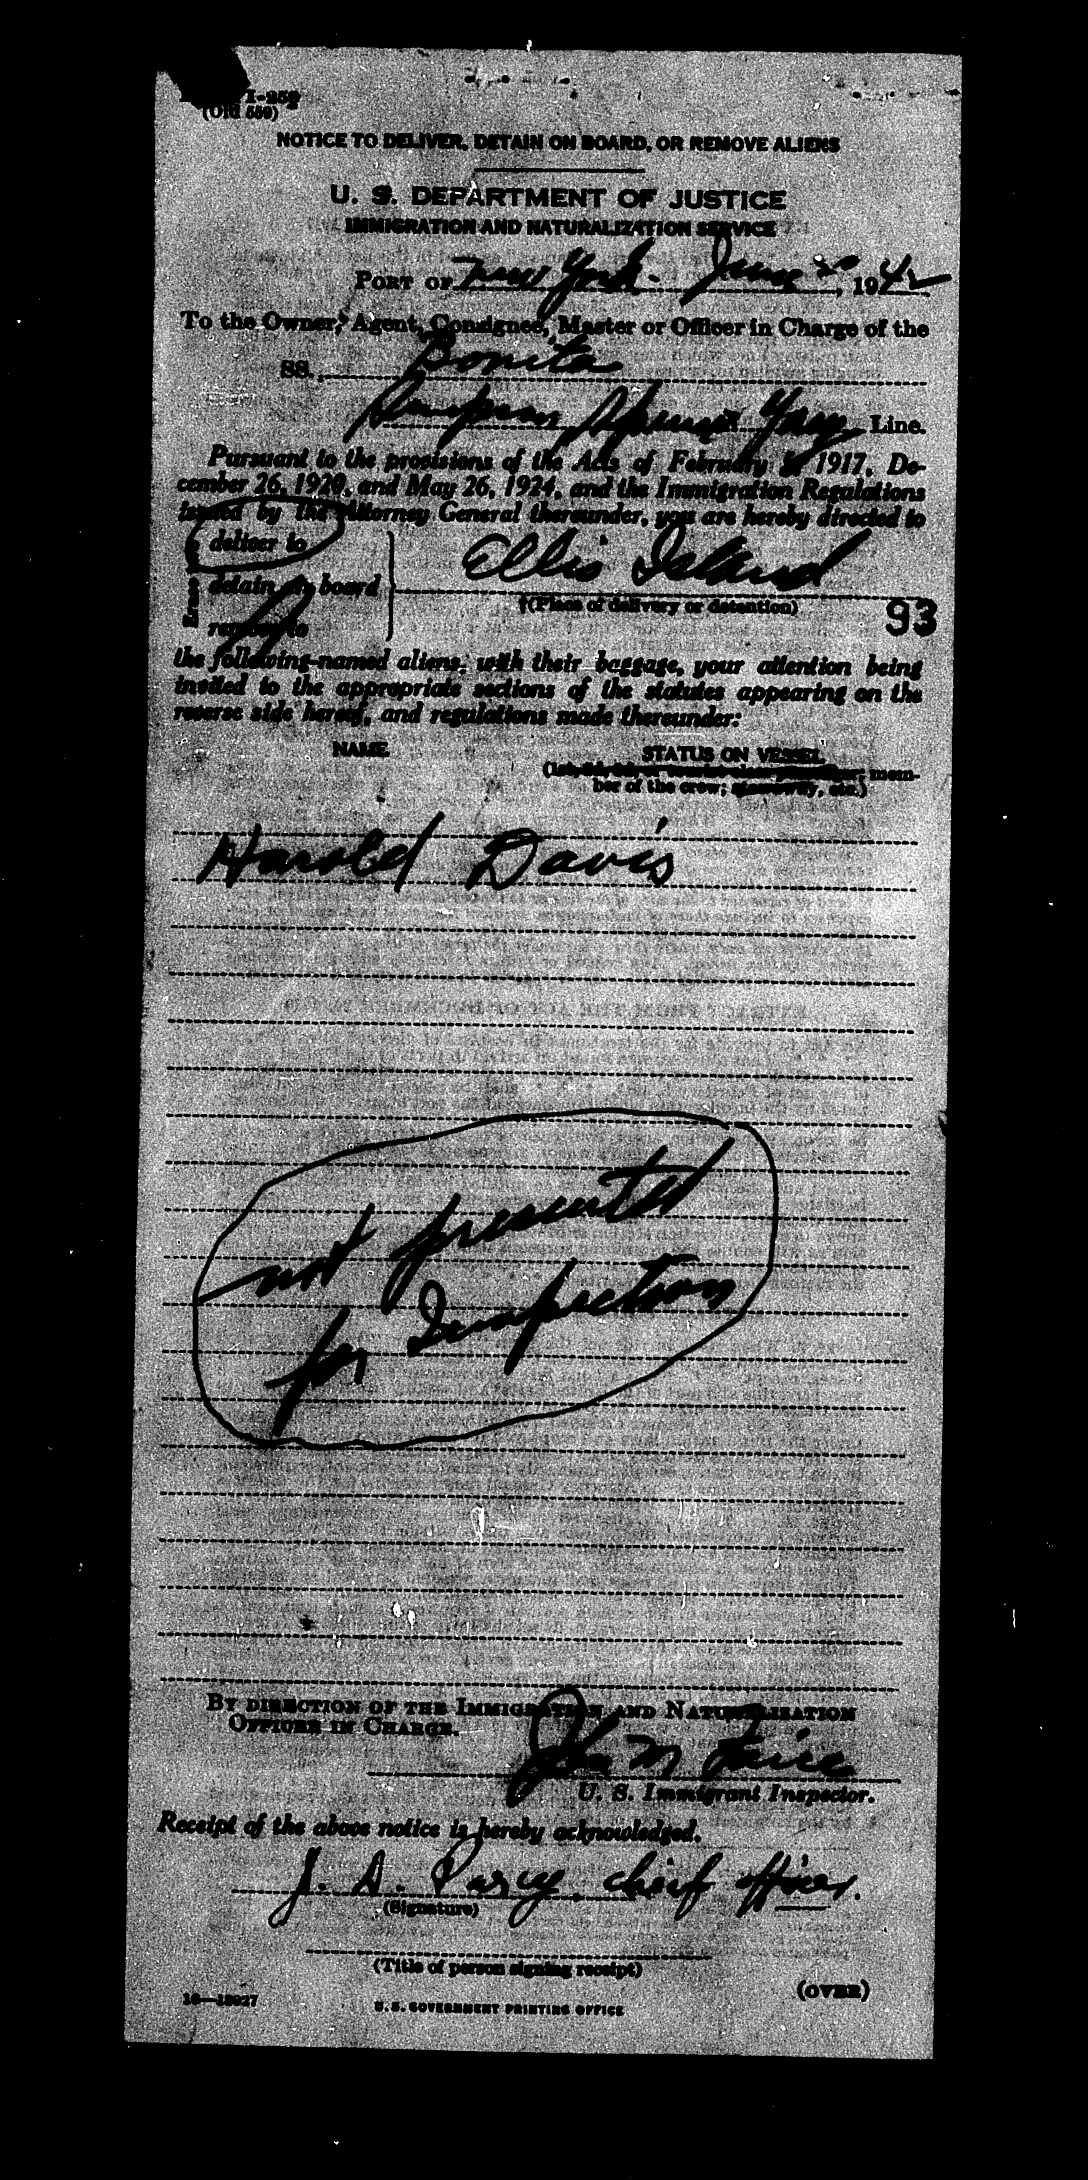 I-259
(Old 559)
NOTICE TO DELIVER, DETAIN ON BOARD, OR REMOVE ALIENS
U. S. DEPARTMENT OF JUSTICE
IMMIGRATION AND NATURALIZATION SERVICE
PORT OF New York. June 20, 1942
To the Owner, Agent, Consignee, Master or Officer in Charge of the
SS. Bonita
Line.
Pursuant to the provisions of the Acts of February 5, 1917, De-
cember 26, 1920, and May 26, 1924, and the Immigration Regulations
issued by the Attorney General thereunder, you are hereby directed to
deliver to
detain on board Ellis Island
†(Place of delivery or detention)
remove to
93
the following-named aliens, with their baggage, your attention being
invited to the appropriate sections of the statutes appearing on the
reverse side hereof, and regulations made thereunder:
NAME STATUS ON VESSEL
mem-
ber of the crew; stowaway, etc.)
Harold Davis
not presented
for Inspection
BY DIRECTION OF THE IMMIGRATION AND NATURALIZATION
OFFICER IN CHARGE.
John M
U. S. Immigrant Inspector.
Receipt of the above notice is hereby acknowledged.
J. A. chief officer.
(Signature)
(Title of person signing receipt)
(OVER)
U. S. GOVERNMENT PRINTING OFFICE